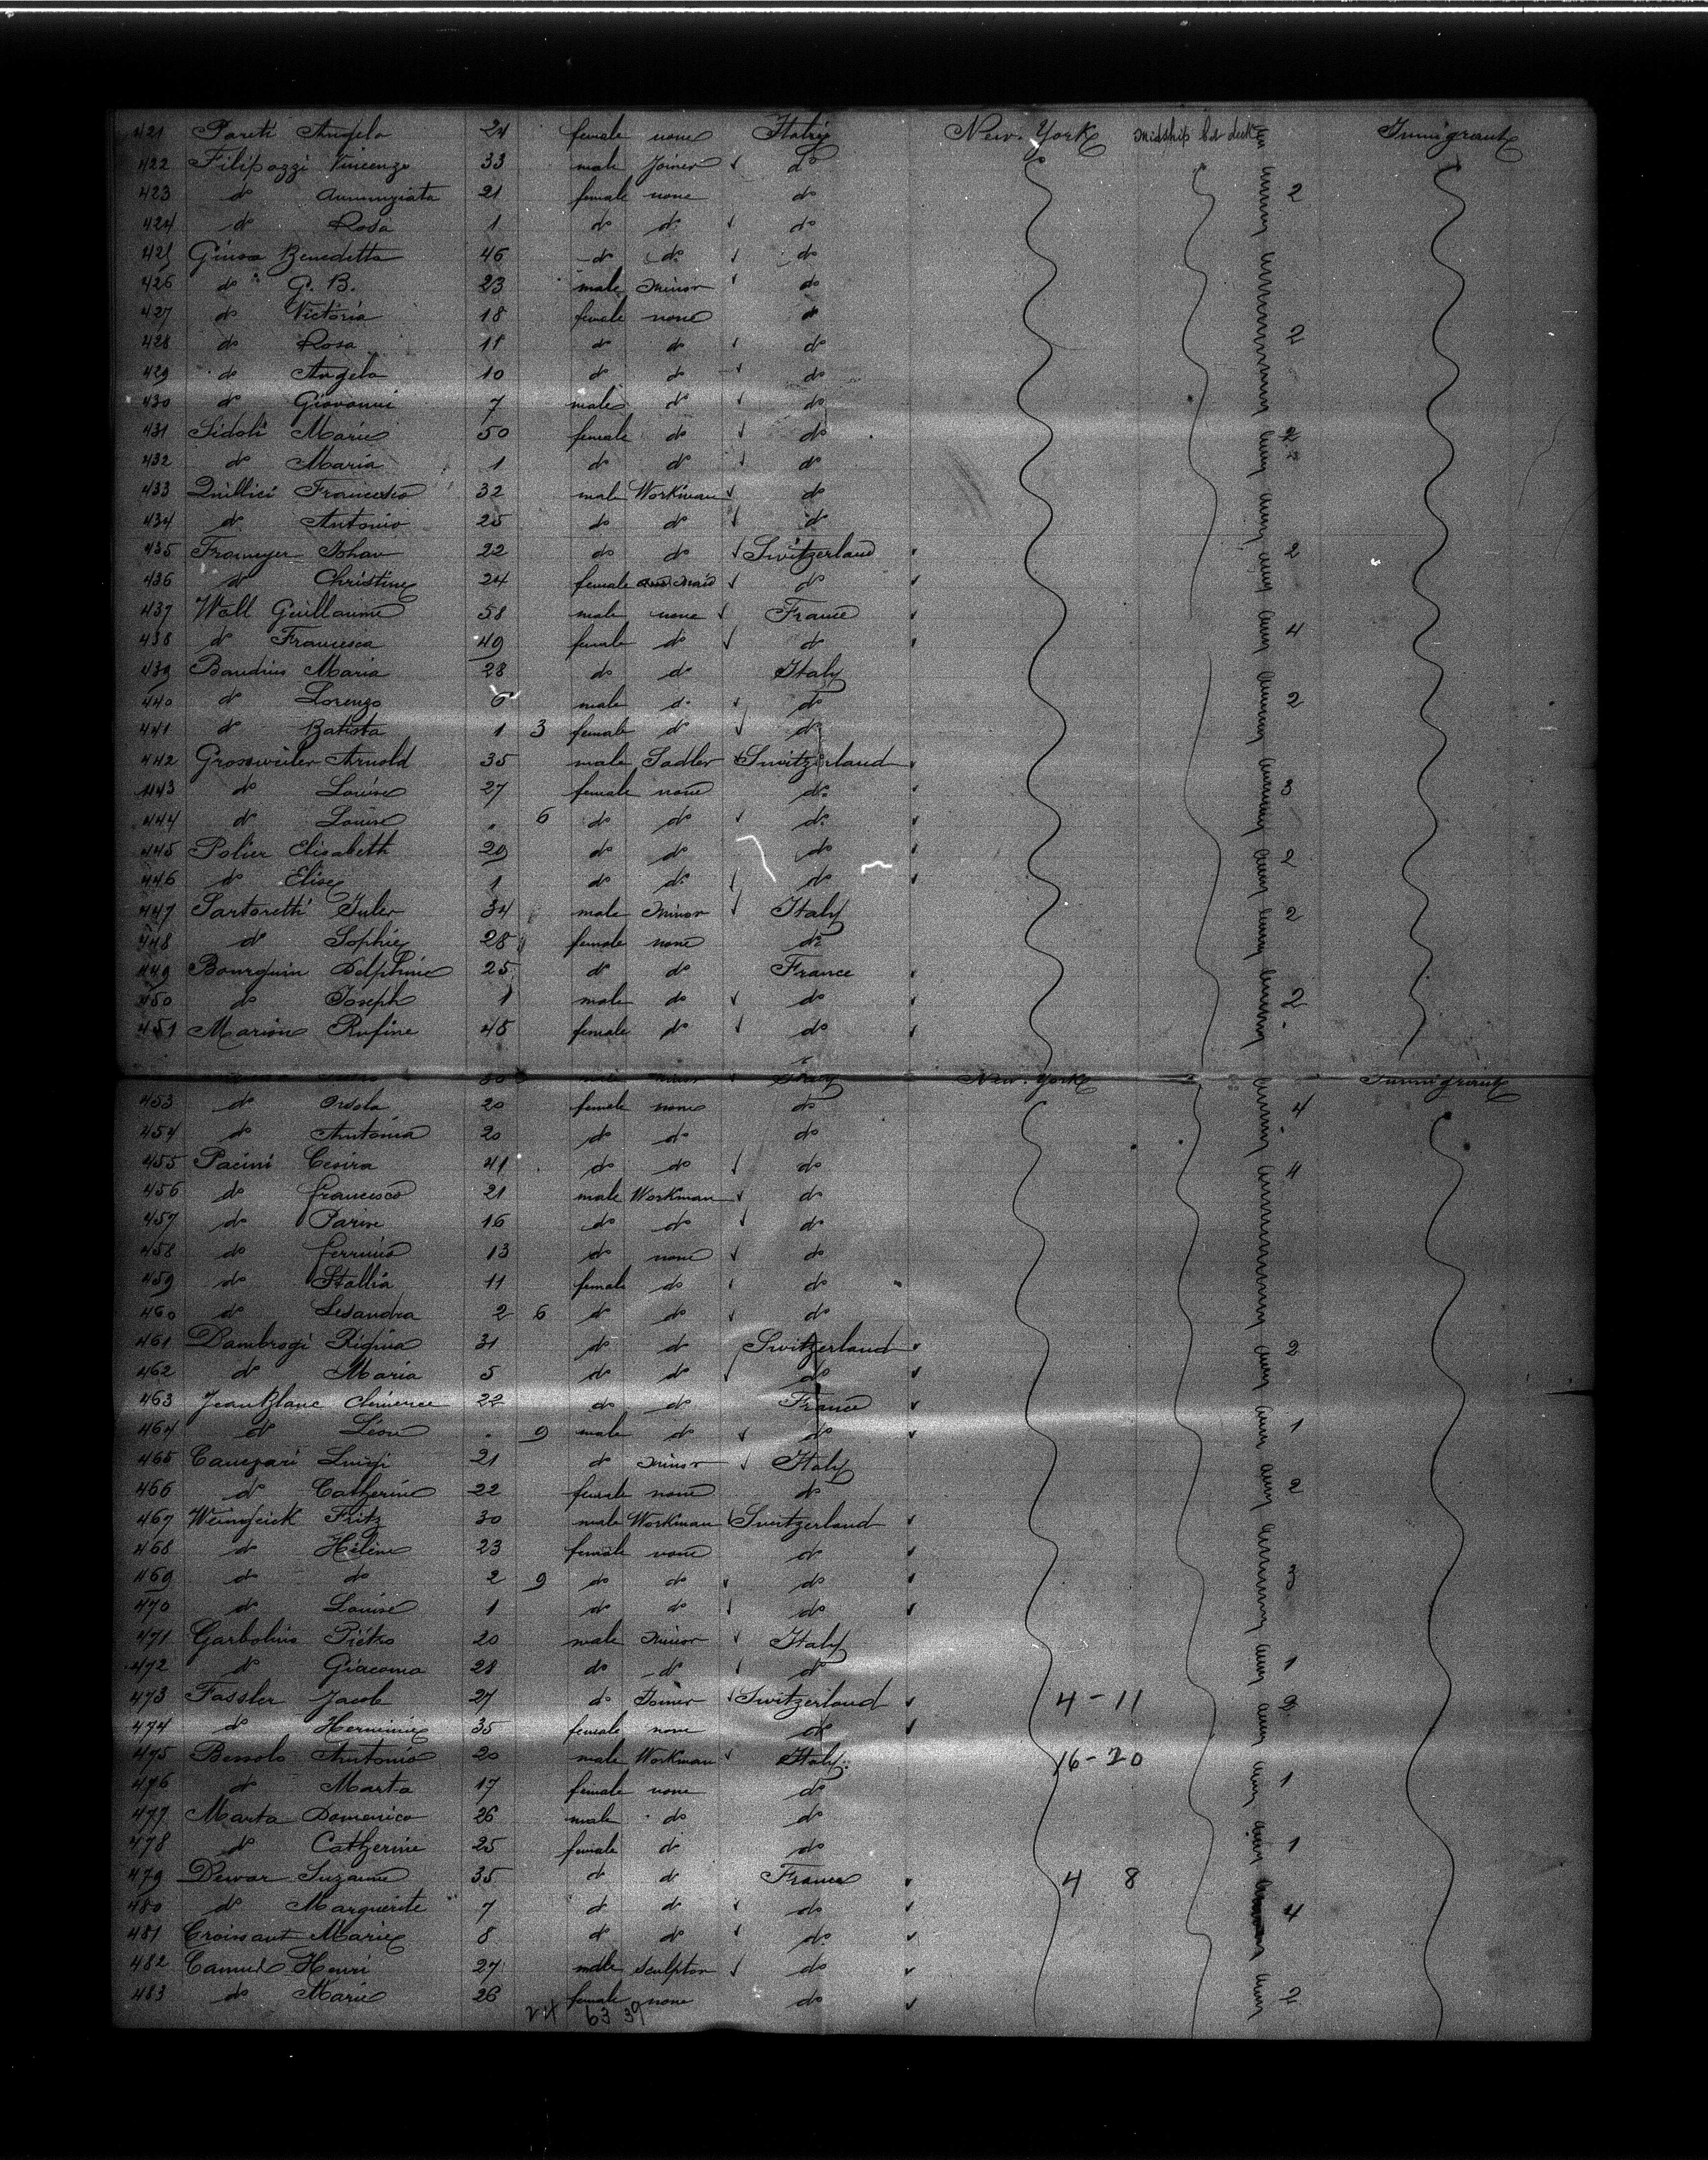 421 Pareti Angela 24 female none Italy New-York midship bet deck Immigrant
422 Filipozzi Vincenzo 33 male Joiner do
423 do Annunziata 21 female none do 2
424 do Rosa 1 do do do
425 Benedetta 46 do do do
426 do G. B. 23 male Minor do
427 do Victoria 18 female none do
428 do Rosa 11 do do do 2
429 do Angela 10 do do do
430 do Giovanni 7 male do do
431 Sidoli Marie 50 female do do
432 do Maria 1 do do do
433 Quillici Francesco 32 male Workman do
434 do Antonio 25 do do do
435 Fromeyer Johan 22 do do Switzerland 2
436 do Christine 24 female do
437 Wall Guillaume 58 male none France
438 do Francesca 49 female do do 4
439 Baudrus Maria 28 do do Italy
440 do Lorenzo 6 male do do 2
441 do Batista 1 3 female do do
442 Grossweiler Arnold 35 male Sadler Switzerland
443 do Louise 27 female none do 3
444 do Louise . 6 do do do
445 Polier Elisabeth 29 do do do 2
446 do Elise 1 do do do
447 Sartoretti Jules 34 male Minor Italy 2
448 do Sophie 28 female none do
449 Bourquin Delphine 25 do do France
450 do Joseph 1 male do do 2
451 Marion Rufine 45 female do do
30 male minor Italy New-York Immigrant
453 do Orsola 20 female none do 4
454 do Antonia 20 do do do
455 Pacini Cesira 41 do do do 4
456 do francesco 21 male Workman do
457 do Parise 16 do do do
458 do ferruccio 13 do none do
459 do Stallia 11 female do do
460 do Lesandra 2 6 do do do
461 Dambrogi Regina 31 do do Switzerland 2
462 do Maria 5 do do do
463 Jeanblanc Clémence 22 do do France
464 do Léon . 9 male do do 1
465 Canepari Luigi 21 do minor Italy
466 do Catherine 22 female none do 2
467 Fritz 30 male Workman Switzerland
468 do Hélène 23 female none do
469 do do 2 9 do do do 3
470 do Louise 1 do do do
471 Garbolino Pietro 20 male Minor Italy
472 do Giacomo 28 do do do 1
473 Fassler Jacob 27 do Joiner Switzerland 4-11 2
474 do Herminie 35 female none do
475 Bessolo Antonio 20 male Workman Italy 16-20
476 do Marta 17 female none do 1
477 Marta Domenico 26 male do do
478 do Catherine 25 female do do 1
479 Dewar Suzanne 35 do do France 4 8
480 do Marguerite 7 do do do 4
481 Croissant Marie 8 do do do
482 Camuel Henri 27 male sculptor do
483 do Marie 26 female none do 2
24 63 39